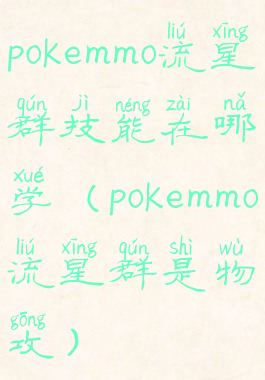 liú xīng
pokemmo流星
qún jì néng zài nǎ
群技能在哪
xué
学（pokemmo
liú xīng qún shì wù
流星群是物
gōng
攻）